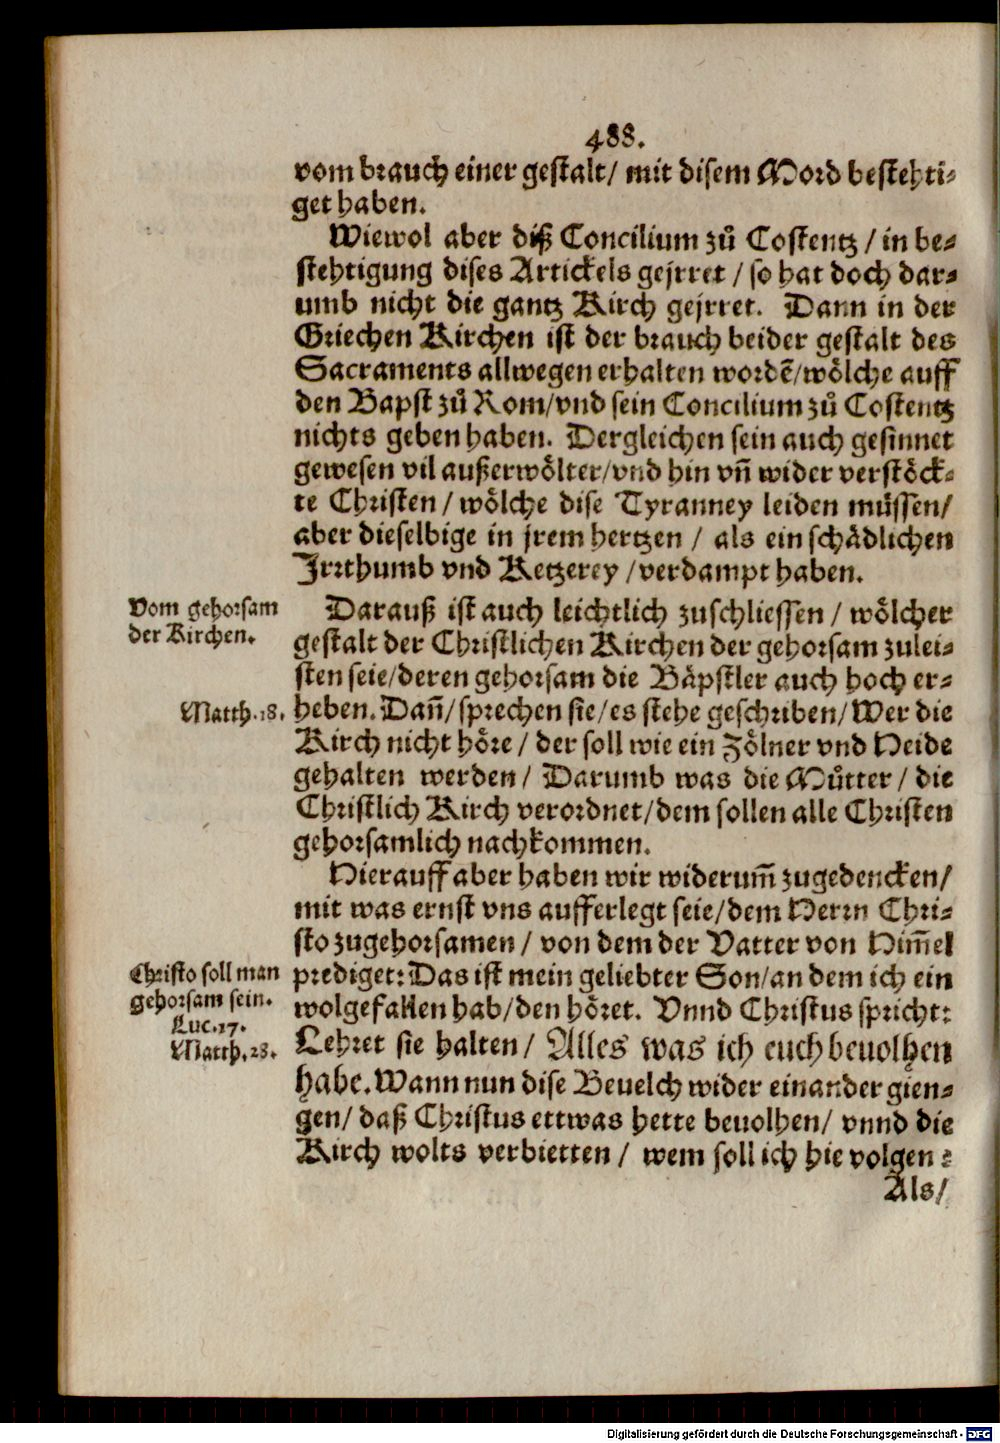 488.
vom brauch einer gestalt/ mit disem Mord bestehti-
get haben.
Wiewol aber diß Concilium zů Costentz / in be-
stehtigung dises Artickels gejrret / so hat doch dar-
umb nicht die gantz Kirch gejrret. Dann in der
Griechen Kirchen ist der brauch beider gestalt des
Sacraments allwegen erhalten wordẽ/wölche auff
den Bapst zů Rom/vnd sein Concilium zů Costentz
nichts geben haben. Dergleichen sein auch gesinnet
gewesen vil außerwölter/vnd hin vñ wider verstöck-
te Christen / wölche dise Tyranney leiden müssen/
aber dieselbige in jrem hertzen / als ein schädlichen
Irrthumb vnd Ketzerey /verdampt haben.
Vom gehorsam
der Kirchen.
Darauß ist auch leichtlich zuschliessen / wölcher
gestalt der Christlichen Kirchen der gehorsam zulei-
sten seie/deren gehorsam die Bäpstler auch hoch er-
Matth.18.
heben. Dañ/ sprechen sie/es stehe geschriben/ Wer die
Kirch nicht höre / der soll wie ein Zölner vnd Heide
gehalten werden / Darumb was die Můtter / die
Christlich Kirch verordnet/dem sollen alle Christen
gehorsamlich nachkommen.
Hierauff aber haben wir widerum̃ zugedencken/
mit was ernst vns aufferlegt seie/dem Herrn Chri-
sto zugehorsamen / von dem der Vatter von Him̃el
Christo soll man
gehorsam sein.
Luc.17.
Matth.28.
prediget: Das ist mein geliebter Son/an dem ich ein
wolgefallen hab/den höret. Vnnd Christus spricht:
Lehret sie halten / Alles was ich euch beuolhen
habe. Wann nun dise Beuelch wider einander gien-
gen/ daß Christus ettwas hette beuolhen/ vnnd die
Kirch wolts verbietten / wem soll ich hie volgen ?
Als/
Digitalisierung gefördert durch die Deutsche Forschungsgemeinschaft - DFG